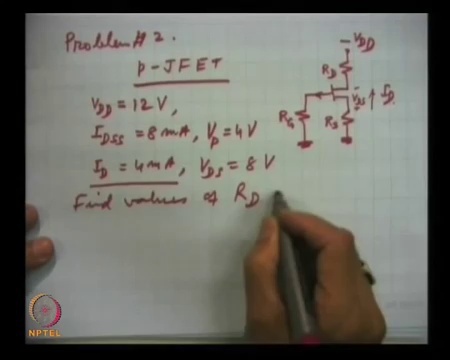 Problem # 2.
p-JFET
V_DD = 12 V,
I_DSS = 8 mA, V_p = 4V
I_D = 4 mA, V_DS = 8 V
Find values of R_D
-V_DD
R_D
V_DS
I_D
R_G
R_S
NPTEL